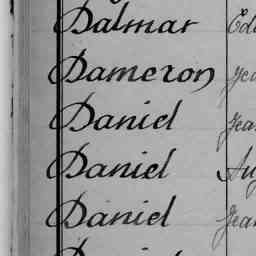 Dalmar Ed
Dameron Jea
Daniel Jean
Daniel Au
Daniel Jean